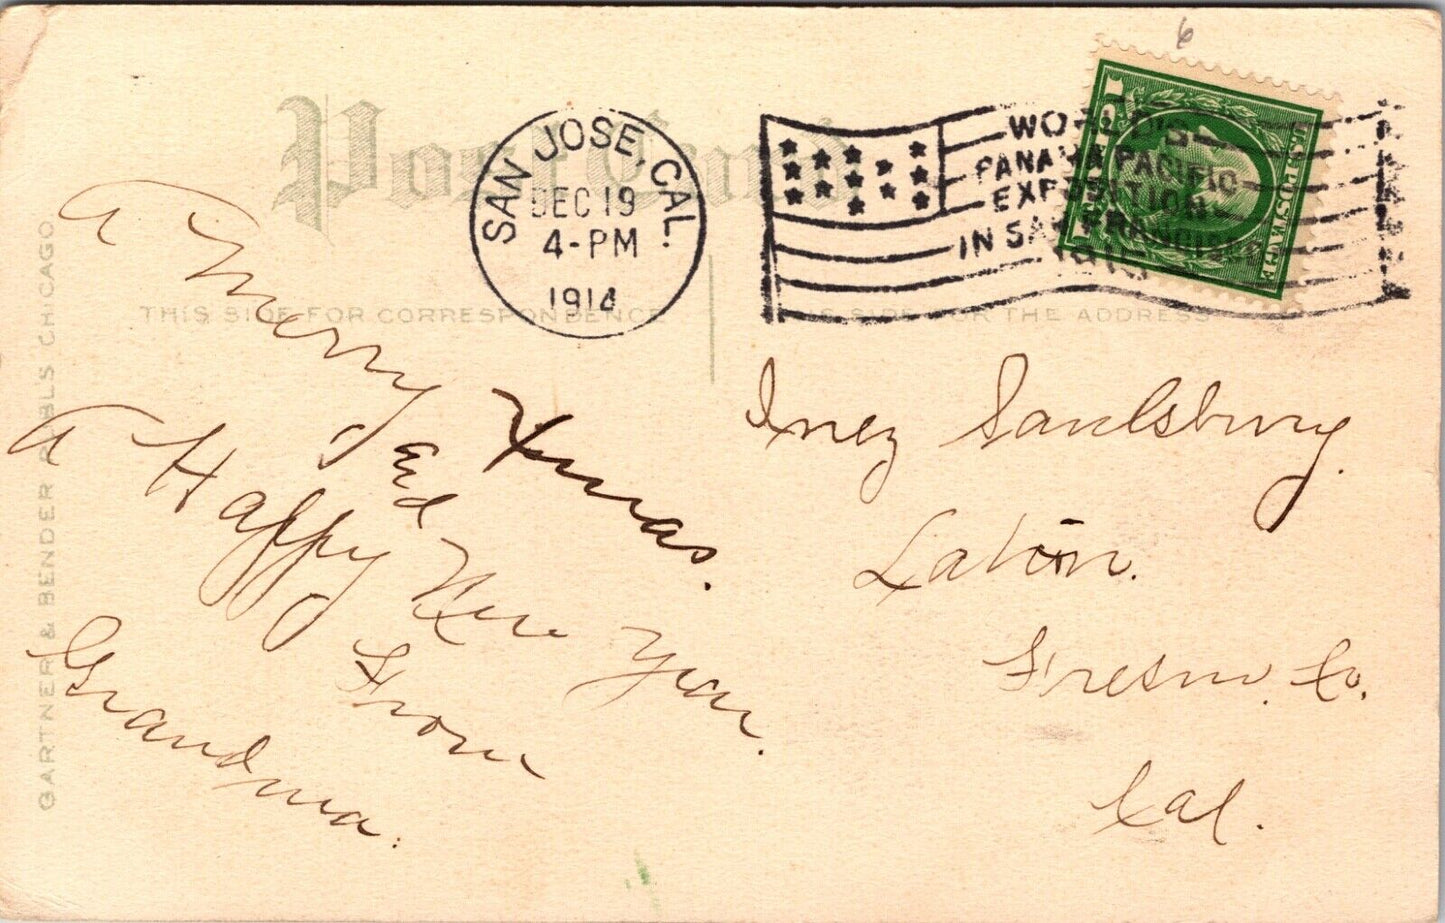 Post Card
SAN JOSE, CAL.
DEC 19
4-PM
1914
WORLD'S
PANAMA PACIFIC
EXPOSITION
IN SAN FRANCISCO
1915
U.S. POSTAGE
6
THIS SIDE FOR CORRESPONDENCE
THIS SIDE FOR THE ADDRESS
GARTNER & BENDER PUBLS CHICAGO
A Merry Xmas.
and
A Happy New Year.
From
Grandma.
Inez Saulsbury.
Laton.
Fresno. Co.
Cal.